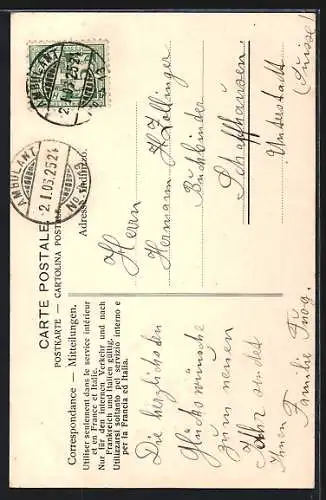 CARTE POSTALE
POSTKARTE — CARTOLINA POSTALE
Correspondance — Mitteilungen.
Utiliser seulement dans le service intérieur
et en France et Italie.
Nur für den internen Verkehr und nach
Frankreich und Italien gültig.
Utilizzarsi soltanto pel servizio interno e
per la Francia ed Italia.
Adresse
AMBULANT
2.I.03.XXI
No
AMBULANT
Die herzlichsten
Glückswünsche
zum neuen
Jahr sendet
Ihnen Familie
Herrn
Hermann H. Zollinger
Buchbinder
Schaffhausen,
Unterstadt
(Suisse)